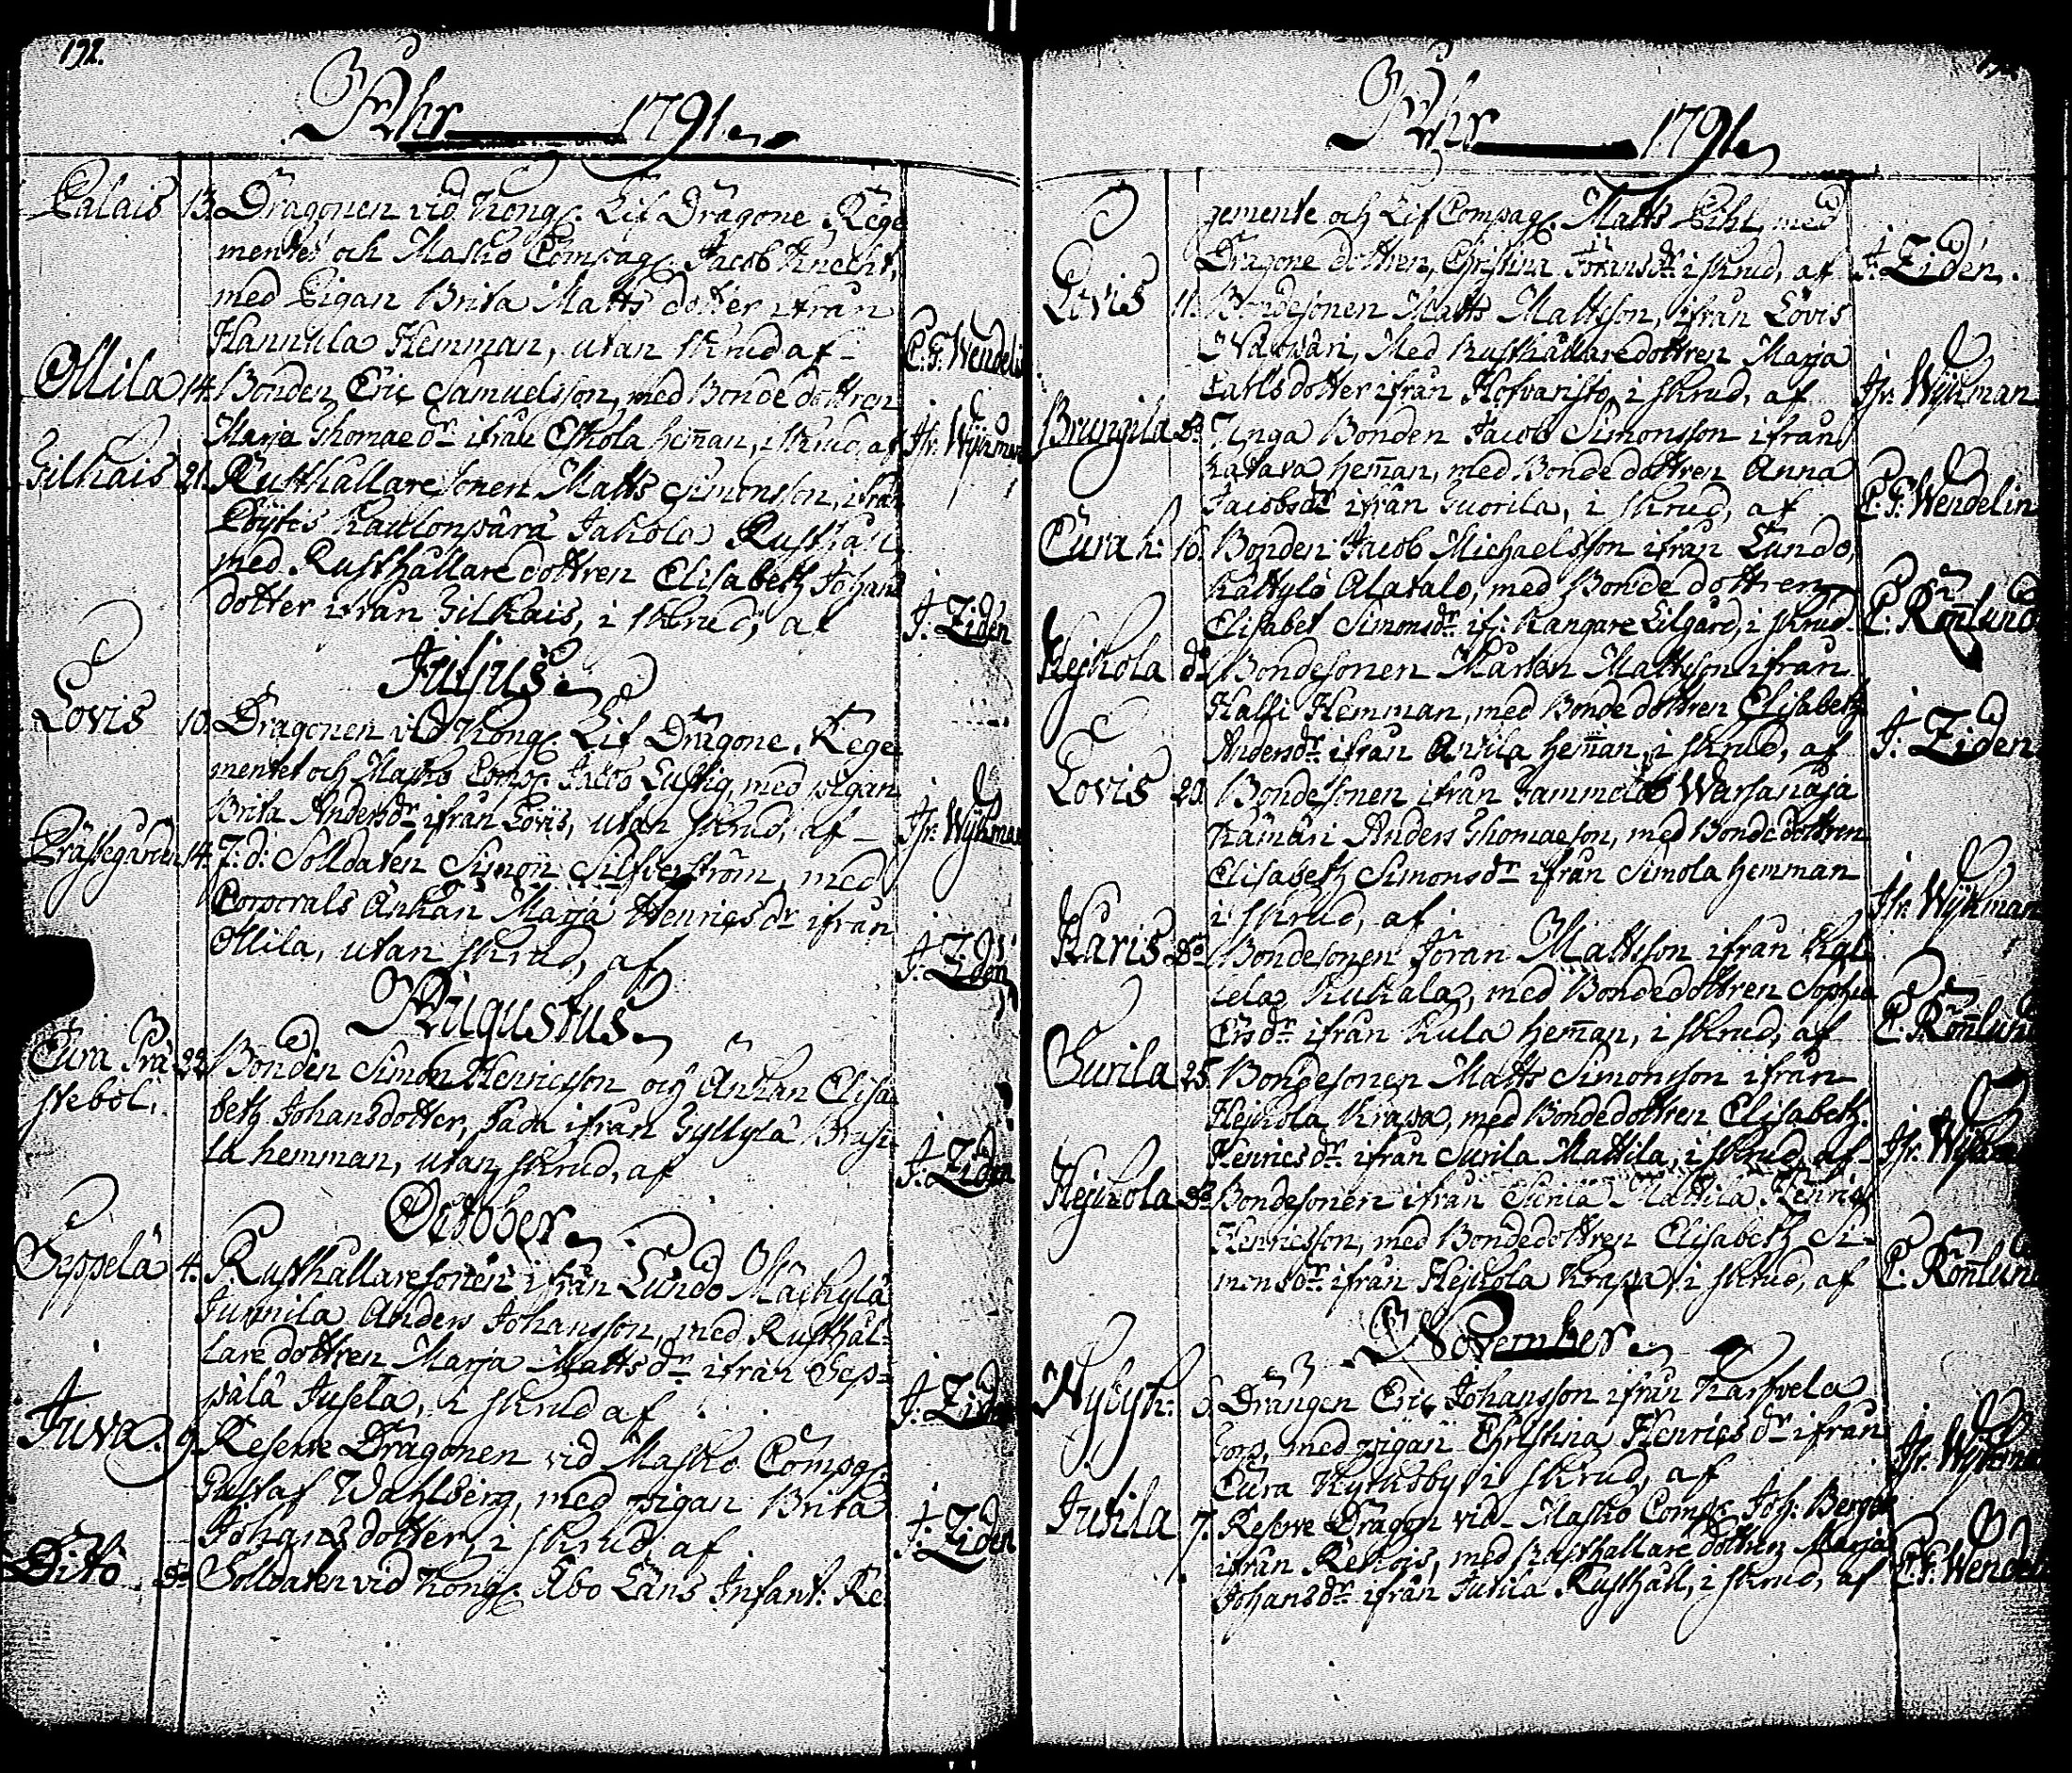 192.
Åhr 1791.
Palais 13. Dragonen vid Kongl. Lif Dragone Rege
mentet och Masko Compag. Jacob Knecht,
med Pigan Brita Matts dotter ifrån
Hannula Hemman, utan skrud af C. F. Wendelin
Ollila 14. Bonden Eric Samuelsson, med Bonde dottren
Marja Thomae dr ifrån Eskola heman, i skrud, af Hr. Wijkman
Gilkais 21. Rusthållare sonen Matts Simonsson, ifrån
Pöytis Kaulonperä Jakola Rusthåll,
med Rusthållare dottren Elisabeth Johans
dotter ifrån Gilkais, i skrud, af J. Ziden
Julius.
Lovis 10. Dragonen vid Kongl. Lif Dragone Rege
mentet och Masko Comp. Jacob Lustig, med pigan
Brita Andersdr ifrån Lovis, utan skrud, af Hr. Wijkman
Prästegården 14. F: d: Solldaten Simon Silfverström, med
Corporals Änkan Marja Henricsdr ifrån
Ollila, utan skrud, af J. Ziden
Augustus.
Cura Prä 22. Bonden Simon Henricsson och Änkan Elisa
stebol. beth Johansdotter, båda ifrån Gyllylä
la hemman, utan skrud, af J. Ziden
October.
Seppälä 4. Rusthållaresonen ifrån Lundo Mäckylä
Junnila Anders Johansson, med Rusthål-
lare dottren Marja Mattsdr ifrån Sep-
pälä Jusela, i skrud af J. Ziden
Juva. 9. Reserve Dragonen vid Masko Compag.
Gustaf Wahlberg, med pigan Brita
Johansdotter, i skrud, af J. Ziden
Dito do Solldaten vid Kongl. Åbo Läns Infant. Re
Åhr 1791.
gemente och Lif Compag. Matts Pihl, med
Dragone dottren, Christina Jöransdr i skrud, af J. Ziden.
Lovis 11. Bondesonen Matts Mattsson, ifrån Lovis
Med Rusthållaredottren Marja
Carlsdotter ifrån Hofvaristo, i skrud, af Hr. Wijkman
Brungila do Unga Bonden Jacob Simonsson ifrån
Katava heman, med Bonde dottren Anna
Jacobsdr ifrån Suorila, i skrud, af C. F. Wendelin
Cura k: 16. Bonden Jacob Michaelsson ifrån Lundo,
Kättylä Alatalo, med Bonde dottren
Elisabet Simonsdr if: Kangare Lilgård, i skrud C. Rönlund
Hejkola do Bondesonen Mårten Mattsson ifrån
Halli Hemman, med Bonde dottren Elisabeth
Andersdr ifrån Anila heman, i skrud, af J. Ziden
Lovis 20. Bondesonen ifrån Warsanaja
Kämäri Anders Thomaeson, med Bondedottren
Elisabeth Simonsdr ifrån Simola hemman
i skrud, af Hr. Wijkman
Karis do Bondesonen Jöran Mattsson ifrån Kal
lela Kukala, med Bondedottren Sophia
Ersdr ifrån Kula heman, i skrud, af C. Rönlund
Surila 25. Bondesonen Matts Simonsson ifrån
Hejkola Krapa, med Bondedottren Elisabeth
Henricsdr ifrån Surila Mattila, i skrud af Hr. Wijkman
Hejkola do Bondesonen ifrån Surila Mattila Henric
Henricsson, med Bondedottren Elisabeth Si-
monsdr ifrån Hejkola Krapa, i skrud, af C. Rönlund
November.
Nybyk: 6. Drängen Eric Johansson ifrån Karfvela
med pigan Christina Henricsdr ifrån
Cura Kyrkoby, i skrud, af Hr. Wijkman
Jutila 7. Reserve Dragon vid Masko Comp. Joh: Berger
ifrån Rekois, med Rusthållare dottren Marja
Johansdr ifrån Jutila Rusthåll, i skrud, af C. F. Wendelin